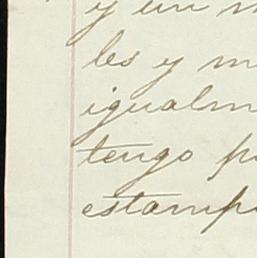 y un
les y m
igualm
tengo p
estamp